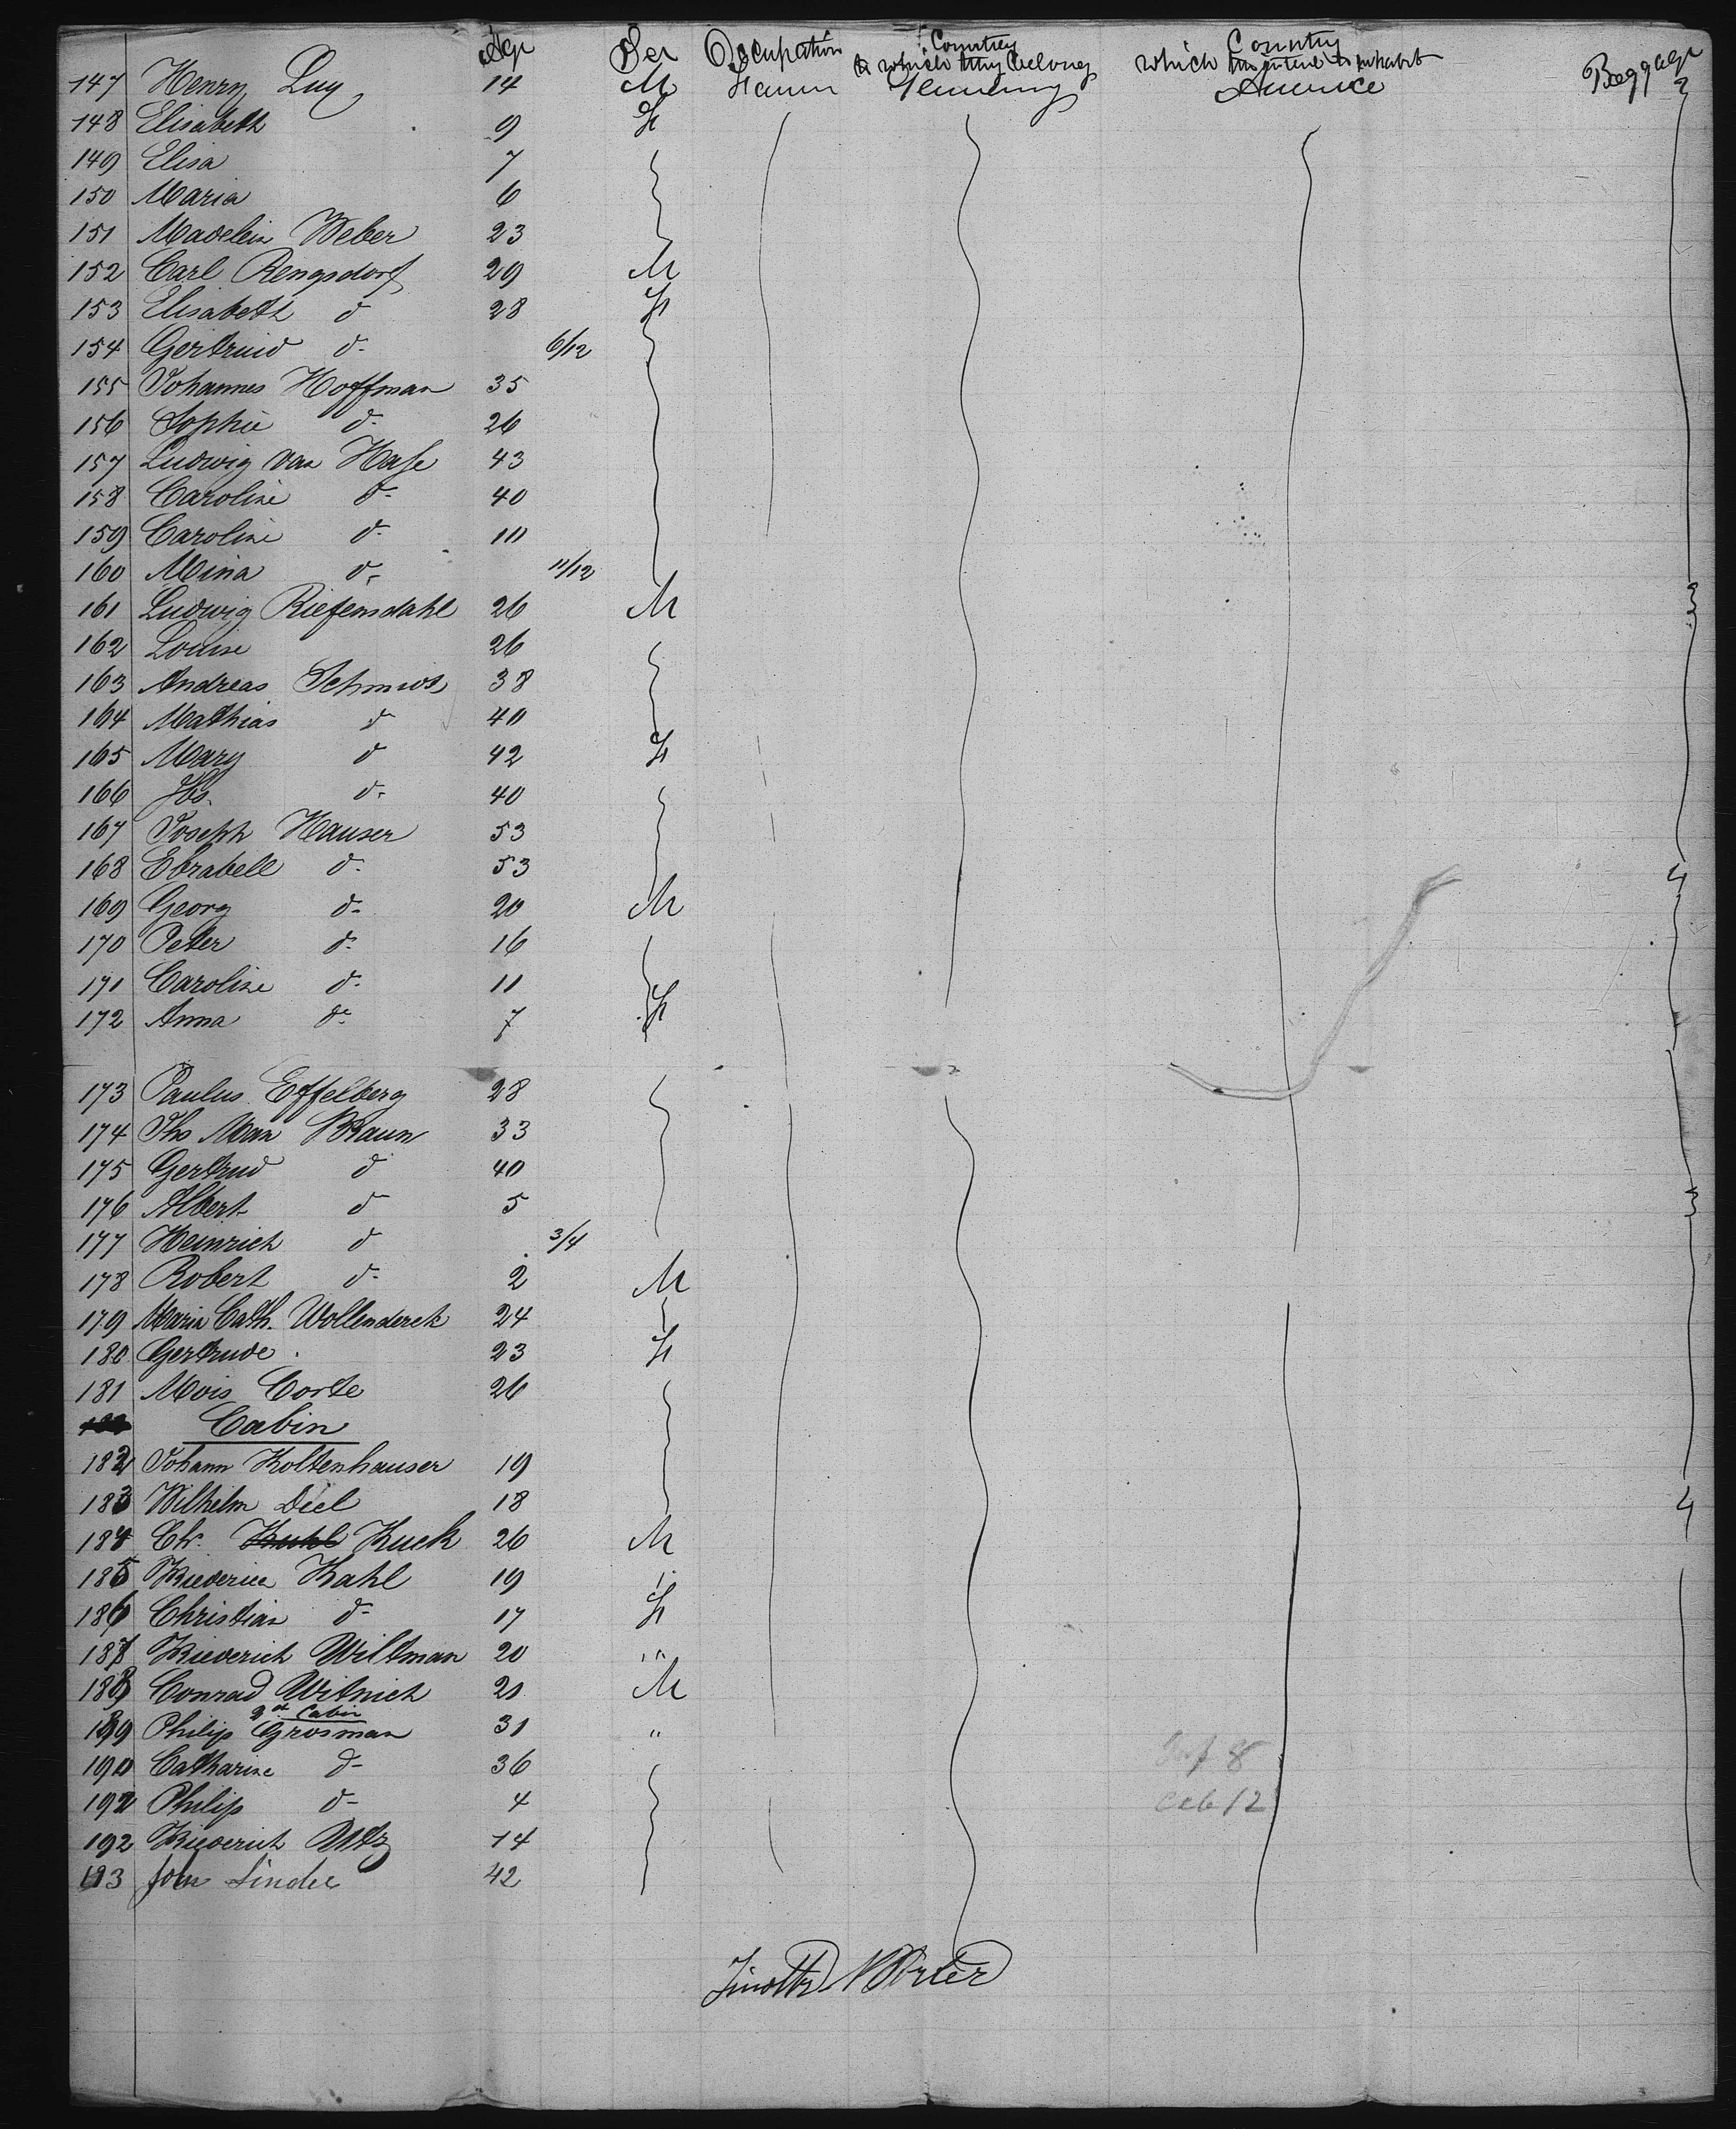 Age Sex Occupation Country to which they belong Country which they intend to inhabit Baggage
147 Henry Luy 14 M Farm Germany America 3
148 Elisabeth 9 F
149 Elisa 7
150 Maria 6
151 Madelein Weber 23
152 Carl Rengsdorf 29 M
153 Elisabeth d 28 F
154 Gertruid d- 6/12
155 Johannes Hoffman 35
156 Sophie d- 26
157 Ludwig van Hase 43
158 Caroline d- 40
159 Caroline d- 10
160 Mina d- 11/12
161 Ludwig Riefensdahl 26 M 3
162 Louise 26
163 Andreas Schmidt 38
164 Mathias d 40
165 Mary d 42 F
166 Jos. d- 40
167 Joseph Hauser 53
168 d- 53 4
169 Georg d- 20 M
170 Peter d- 16
171 Caroline d- 11
172 Anna d- 7 F
173 Paulus Effelberg 28
174 Ths Man Braun 33
175 Gertrud d 40
176 Albert d 5 3
177 Heinrich d 3/4
178 Robert d- 2 M
179 Maria Cath. Wollenderck 24
180 Gertrude 23 F
181 Mois Corte 26
Cabin
182 Johann Koltenhauser 19
183 Wilhelm Diel 18 4
184 Ch. Kuhl Kuck 26 M
185 Kahl 19 "
186 Christian d- 17 F
187 Wiltman 20 "
188 Conrad Witnich 21 M
2nd Cabin
189 Philip Grosman 31 "
190 Catharine d- 36
191 Philip d- 4
192 Utz 14
193 John Linde 42
Inf 8
Cab 12